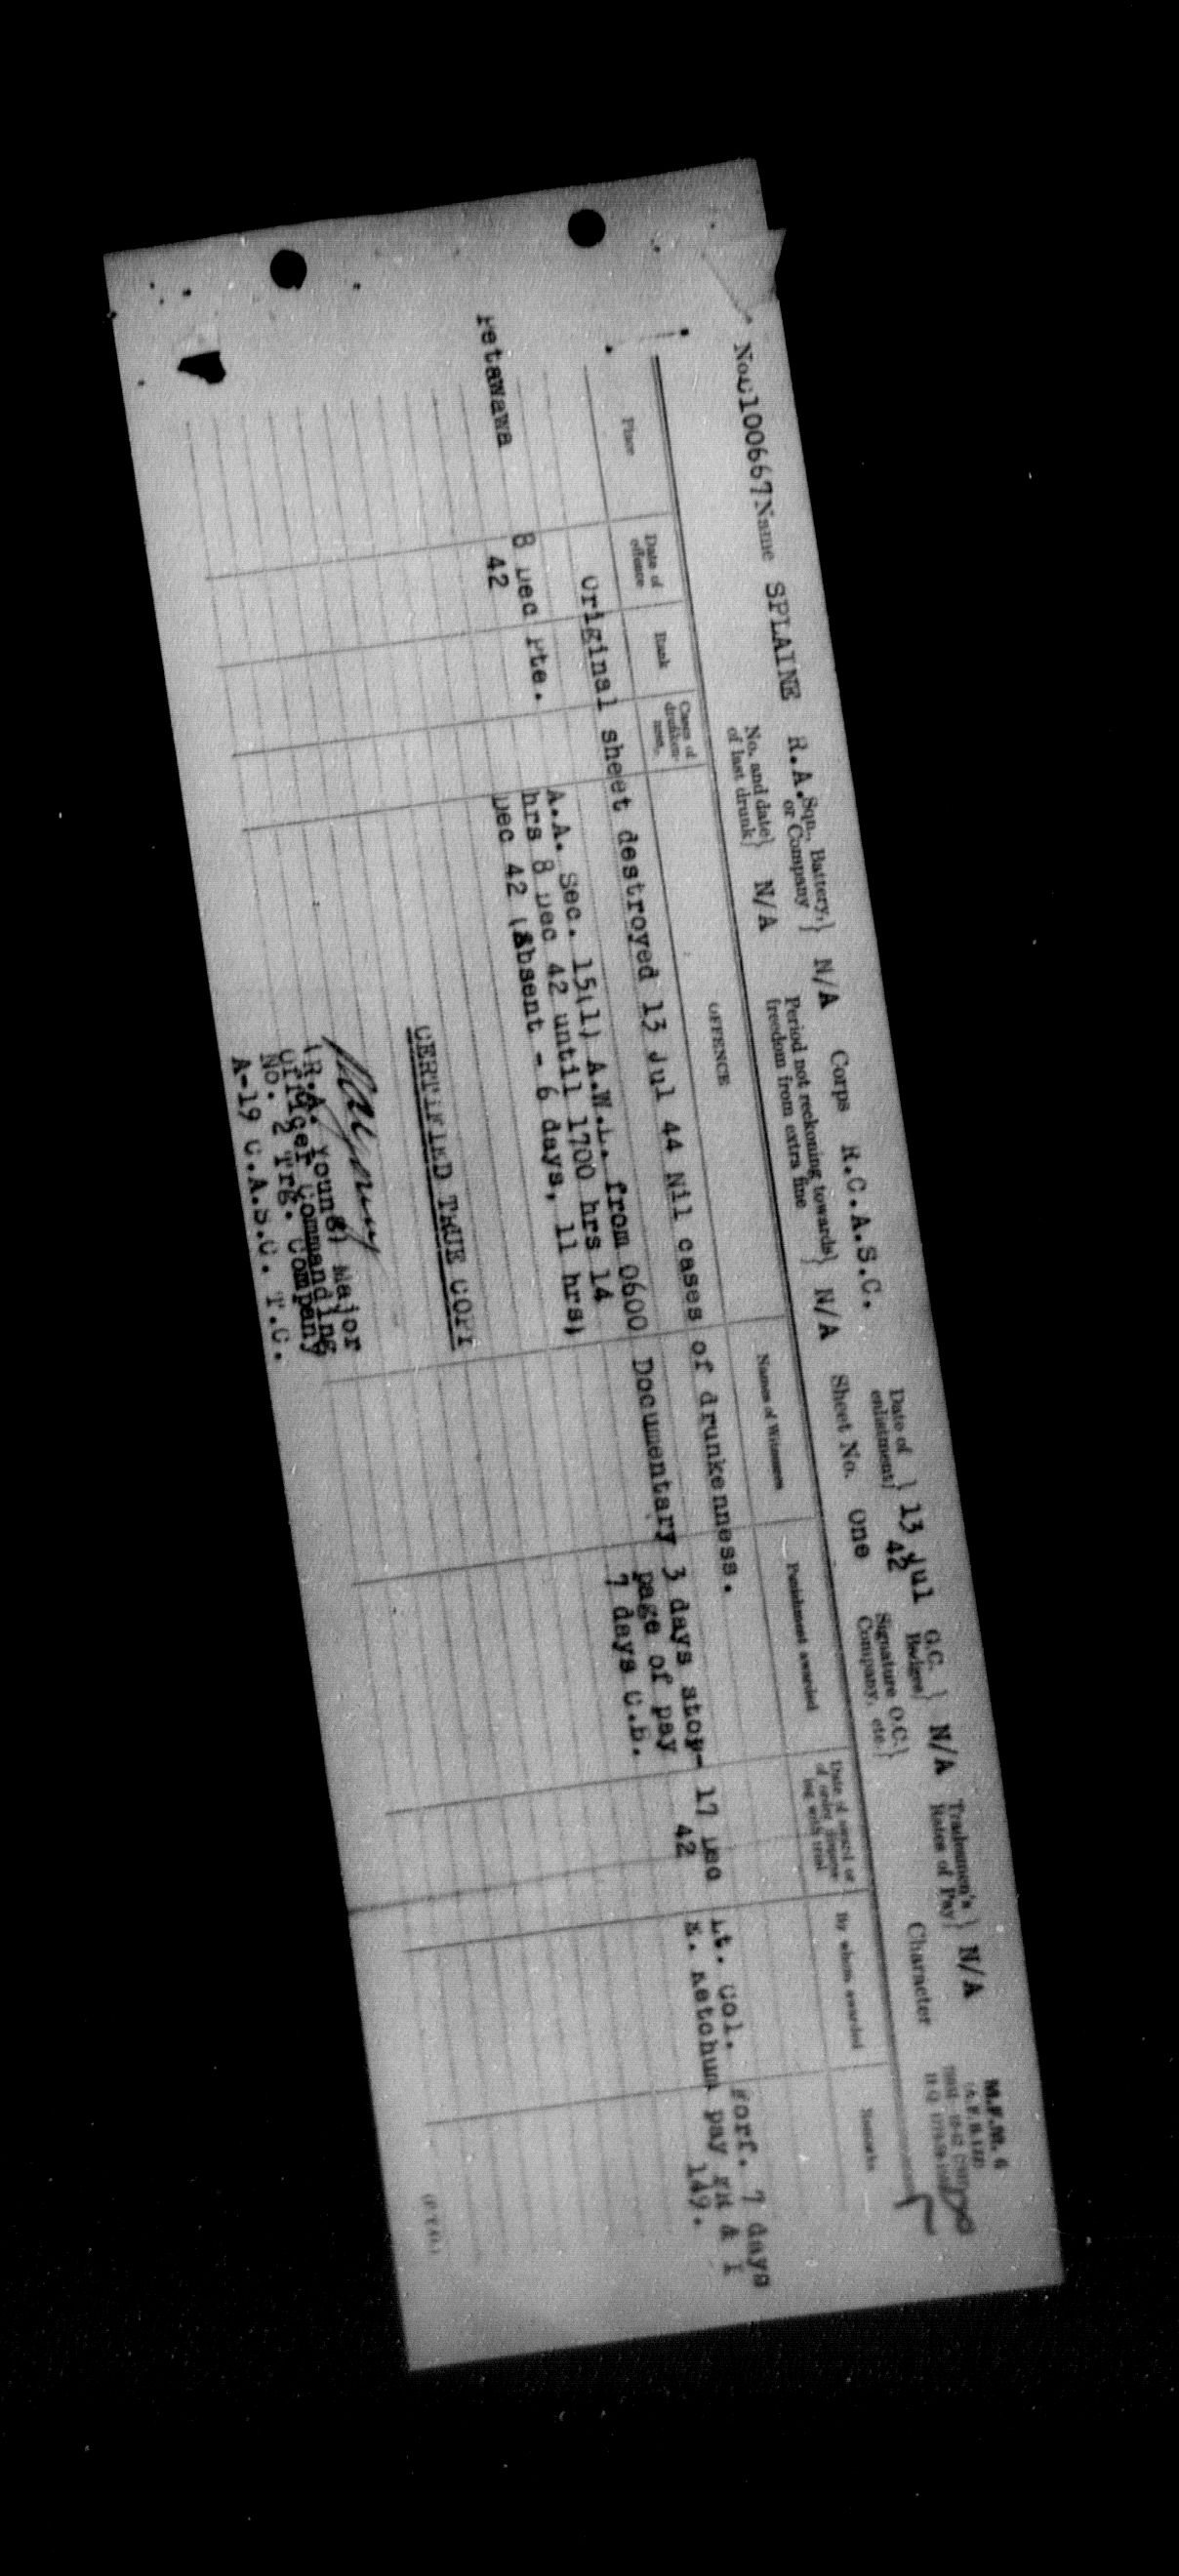 M.F.M. 6
No. C100667 Name SPLAINE R.A. Sqn., Battery, or Company } N/A Corps R.C.A.S.C. Date of enlistment } 13 Jul 42 G.C. Badges } N/A Tradesmen's Rates of Pay } N/A
No. and date of last drunk } N/A Period not reckoning towards freedom from extra fine } N/A Sheet No. One Signature O.C. Company, etc. } Character
Place Date of offence Rank Cases of drunkenness. OFFENCE Names of Witnesses Punishment awarded Date of award or of order dispensing with trial By whom awarded Remarks
Original sheet destroyed 13 Jul 44 Nil cases of drunkenness.
Petawawa 8 Dec Pte. A.A. Sec. 15(1) A.W.L. from 0600 Documentary 3 days stop- 17 Dec Lt. Col. Forf. 7 days
42 hrs 8 Dec 42 until 1700 hrs 14 page of pay 42 Ketchum pay
Dec 42 (Absent - 6 days, 11 hrs) 7 days C.B. 149.
CERTIFIED TRUE COPY
(R.A. Young) Major
Officer Commanding
No. 2 Trg. Company
A-19 C.A.S.C. T.C.
(P.T.O.)